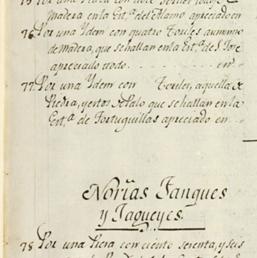 Madera en la Est.ª del Alamo apreciado en
76 Por una Ydem con quatro Toriles aumenno
de Madera, que se hallan en la Est.ª de S. Jose
apreciado todo en
77 Por una Ydem con Toriles, aquella de
Piedra, y estos de Palo que se hallan en la
Est.ª de Tortuguillas apreciado en
Norias Tanques
y Jagueyes.
78 Por una Pieza con ciento setenta, y seis